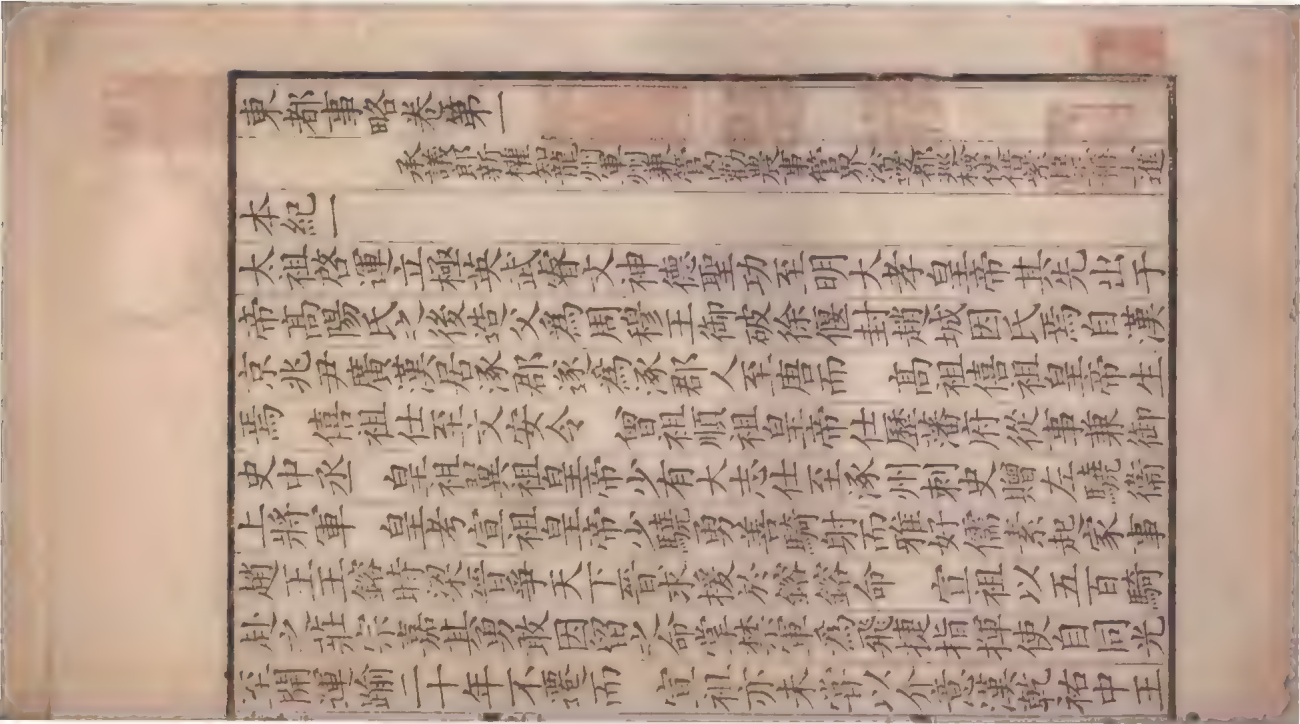 東都事略卷第一
承議郎新權知龍州軍州兼管内勸農事管界沿邊都巡檢使借紫臣王稱上進
本紀一
太祖啓運立極英武睿文神德聖功至明大孝皇帝其先出于
帝髙陽氏之後造父爲周穆王御破徐偃封趙城因氏焉自漢
京兆尹廣漢居涿郡遂爲涿郡人至唐而　髙祖僖祖皇帝生
焉　僖祖仕至文安令　曾祖順祖皇帝仕歷藩府從事兼御
史中丞　皇祖翼祖皇帝少有大志仕至涿州刺史贈左驍衛
上將軍　皇考宣祖皇帝少驍勇善騎射而雅好儒素起家事
趙王王鎔時梁晉爭天下晉求援於鎔鎔命　宣祖以五百騎
赴之莊宗嘉其勇敢因留之命掌禁軍爲飛捷指揮使自同光
至開運踰二十年不遷而　宣祖亦未甞以介意漢乾祐中王